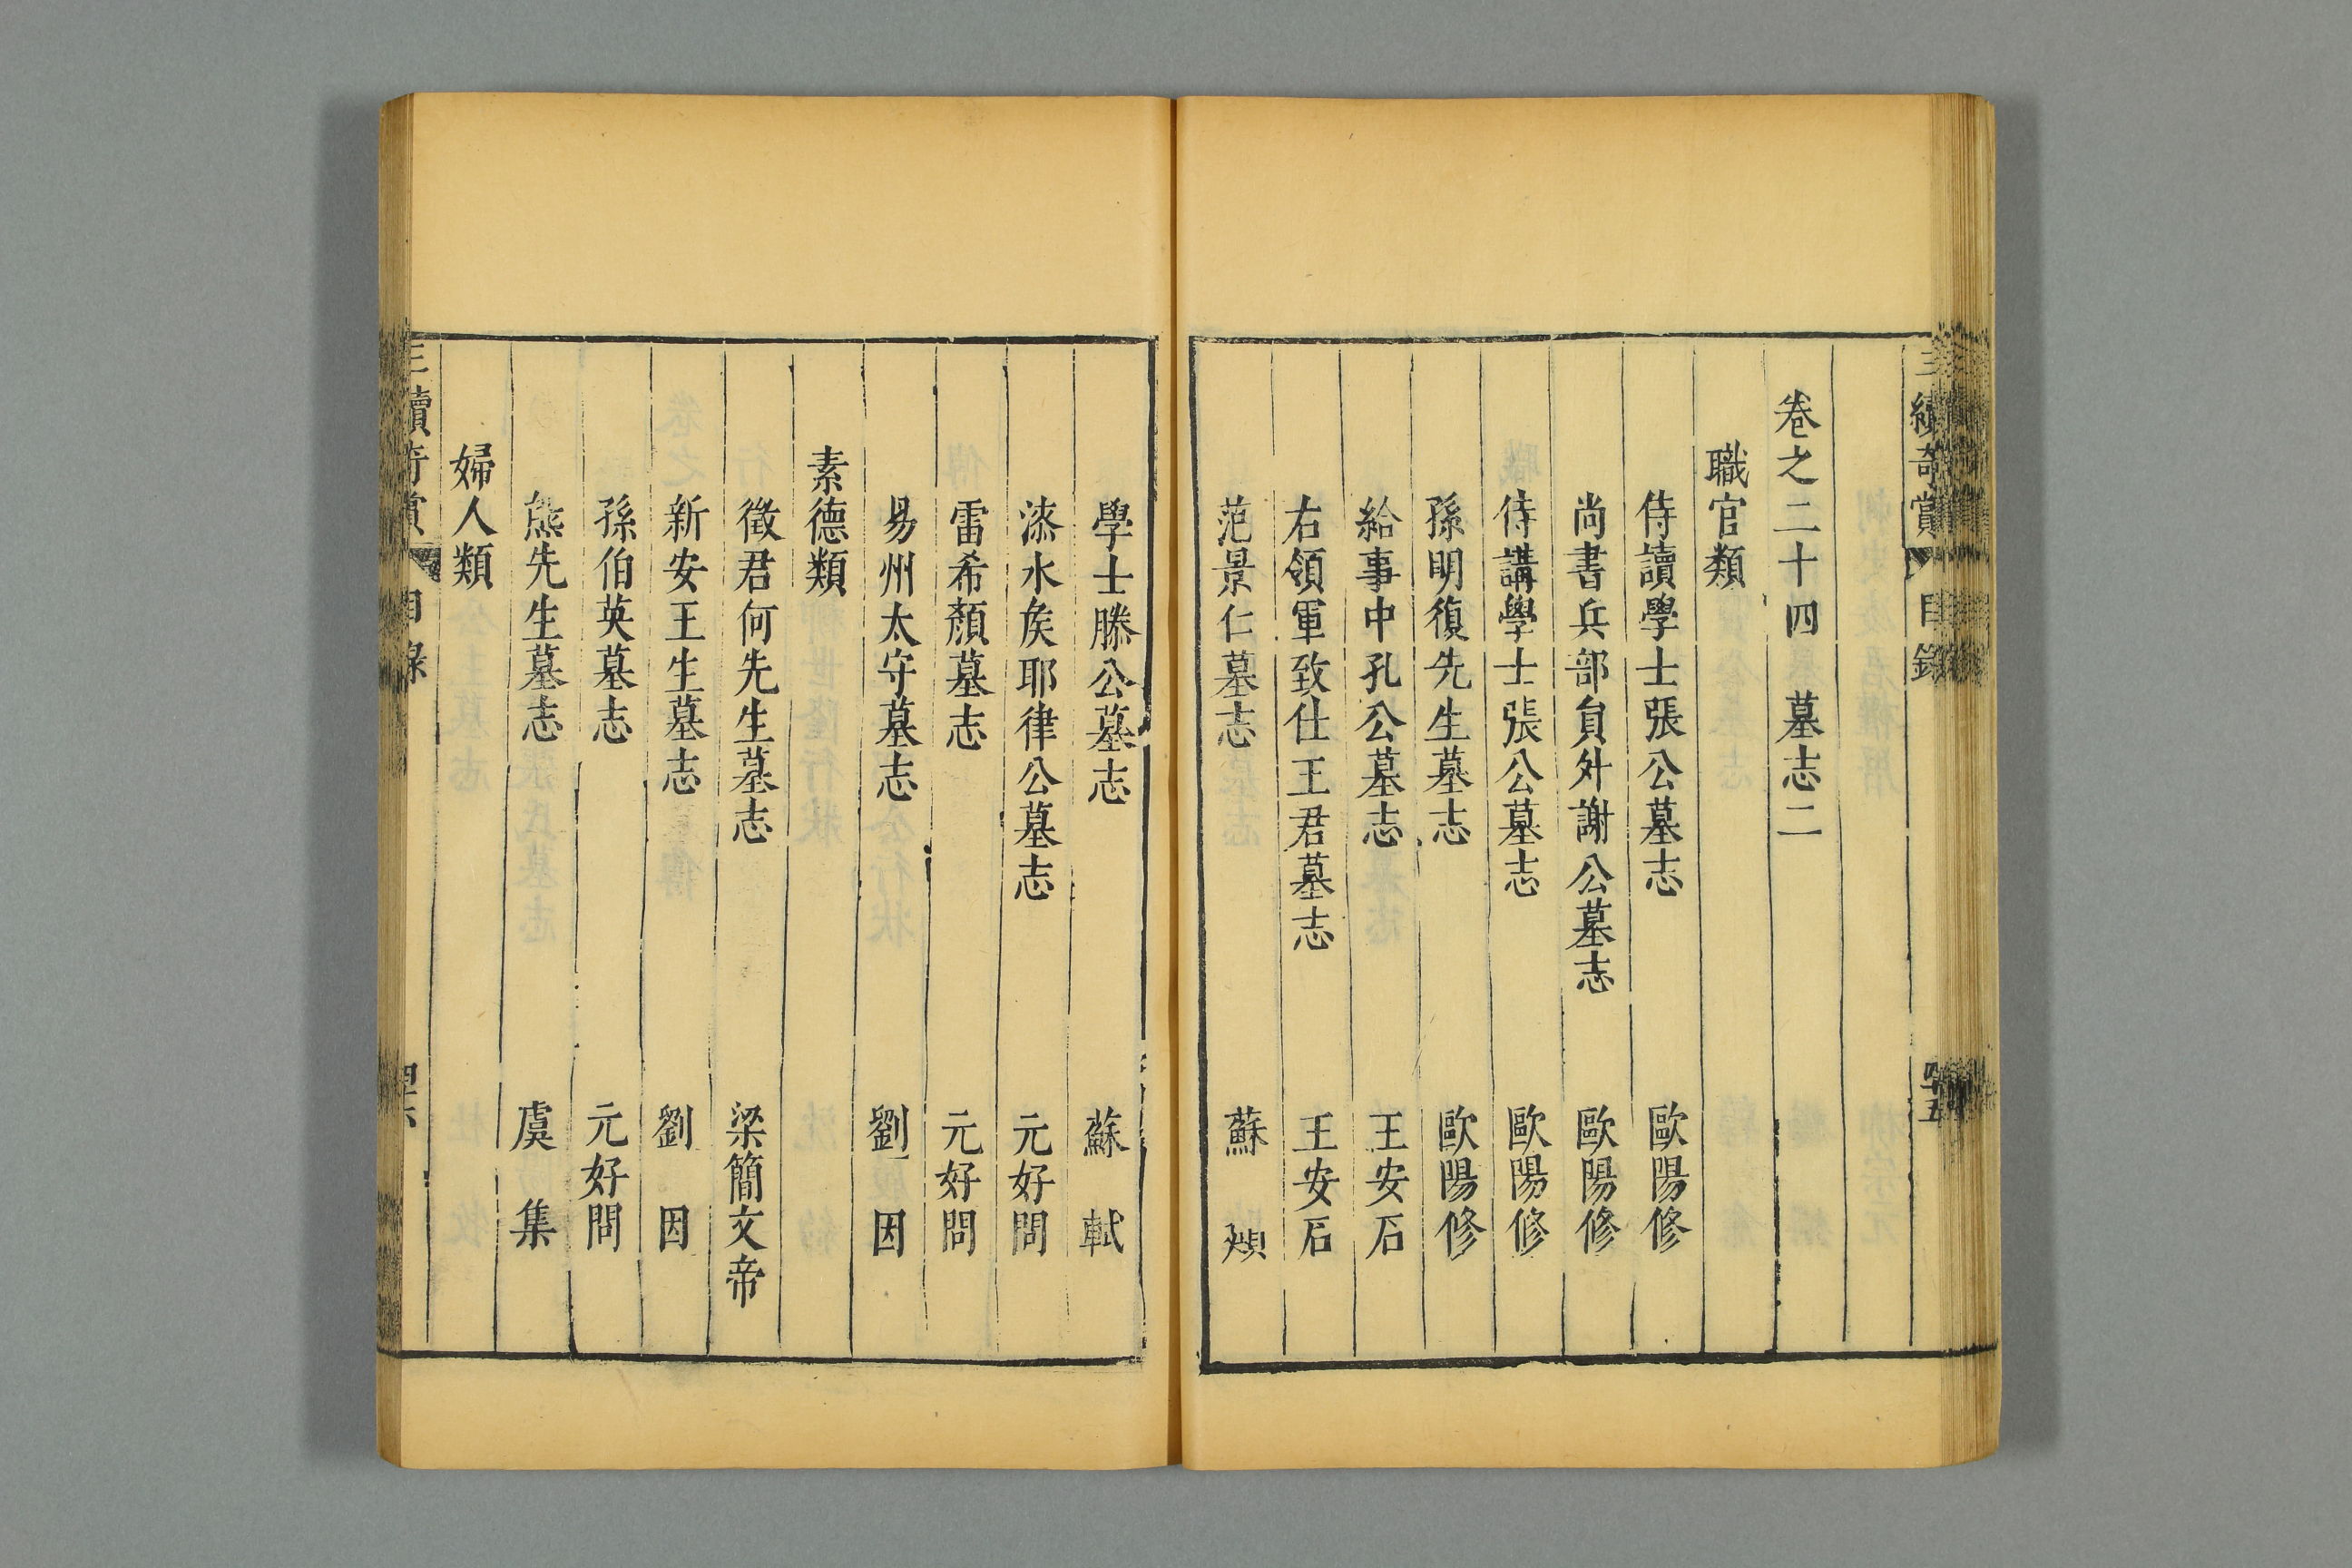 三續奇賞 目錄 四十五
卷之二十四 墓志二
職官類
侍讀學士張公墓志 歐陽修
尚書兵部員外謝公墓志 歐陽修
侍講學士張公墓志 歐陽修
孫明復先生墓志 歐陽修
給事中孔公墓志 王安石
右領軍致仕王君墓志 王安石
范景仁墓志 蘇 軾
學士滕公墓志 蘇 軾
漆水矦耶律公墓志 元好問
雷希顏墓志 元好問
易州太守墓志 劉 因
素德類
徵君何先生墓志 梁簡文帝
新安王生墓志 劉 因
孫伯英墓志 元好問
熊先生墓志 虞 集
婦人類
三續奇賞 目錄